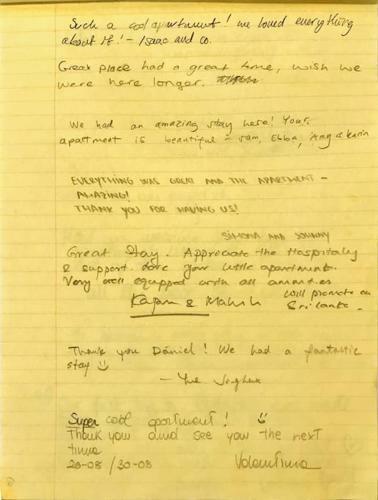 Such a cool apartment! we loved everything
about it! - Isaac and co.
Great place had a great time, wish we
were here longer.
We had an amazing stay here! Your
apartment is beautiful - Sam, Ebba, Ang & Karin
EVERYTHING WAS GREAT AND THE APARTMENT -
AMAZING!
THANK YOU FOR HAVING US!
SIMONA AND JOHNNY
Great Stay. Appreciate the Hospitality
& support. Love your little apartment.
Very well equipped with all amenities
will promote on
Sri Lanka.
Thank you Daniel! We had a fantastic
stay
Super cool apartment!
Thank you and see you the next
time
28-08 / 30-08 Valentina